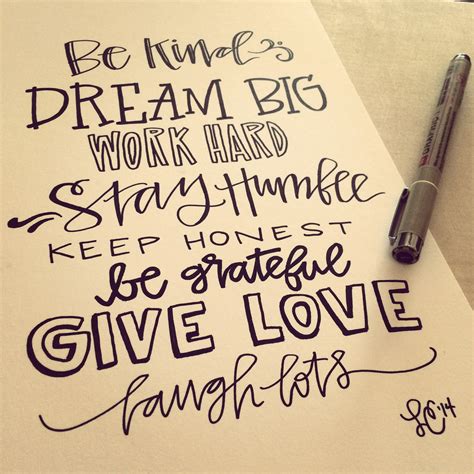 Be Kind
DREAM BIG
WORK HARD
Stay Humble
KEEP HONEST
be grateful
GIVE LOVE
laugh lots
LC '14